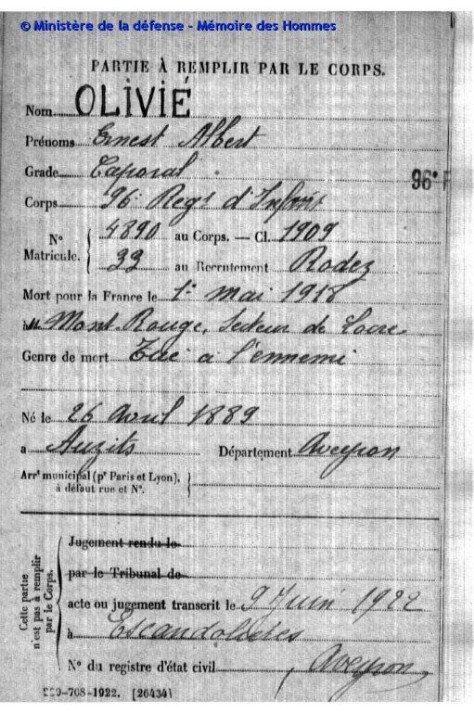 © Ministère de la défense - Mémoire des Hommes
PARTIE À REMPLIR PAR LE CORPS.
Nom OLIVIÉ
Prénoms Ernest Albert
Grade Caporal
96e
Corps 96e Regt d'Infrie
Nos Matricule. { 4890 au Corps. — Cl. 1909
33 au Recrutement Rodez
Mort pour la France le 1er mai 1918
au Mont Rouge, Secteur de Locre
Genre de mort Tué à l'ennemi
Né le 26 Avril 1889
à Auzits Département Aveyron
Arrt municipal (pr Paris et Lyon), à défaut rue et N°. }
Cette partie n'est pas à remplir par le Corps. {
Jugement rendu le
par le Tribunal de
acte ou jugement transcrit le 9 Juin 1922
à Escandolières
N° du registre d'état civil Aveyron
-708-1922. [26434]